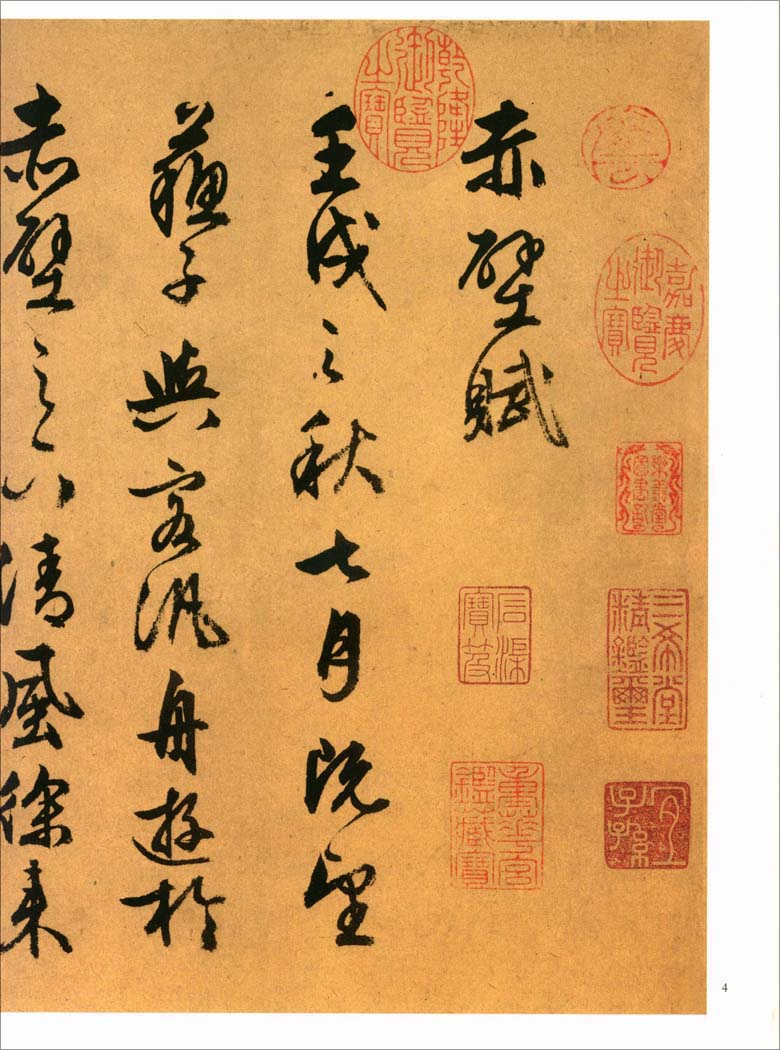 嘉慶御覽之寶
樂善堂圖書記
三希堂精鑑璽
宜子孫
赤壁賦
石渠寶笈
重華宮鑑藏寶
乾隆御覽之寶
壬戌之秋七月既望
蘇子與客汎舟遊於
赤壁之下清風徐來
4